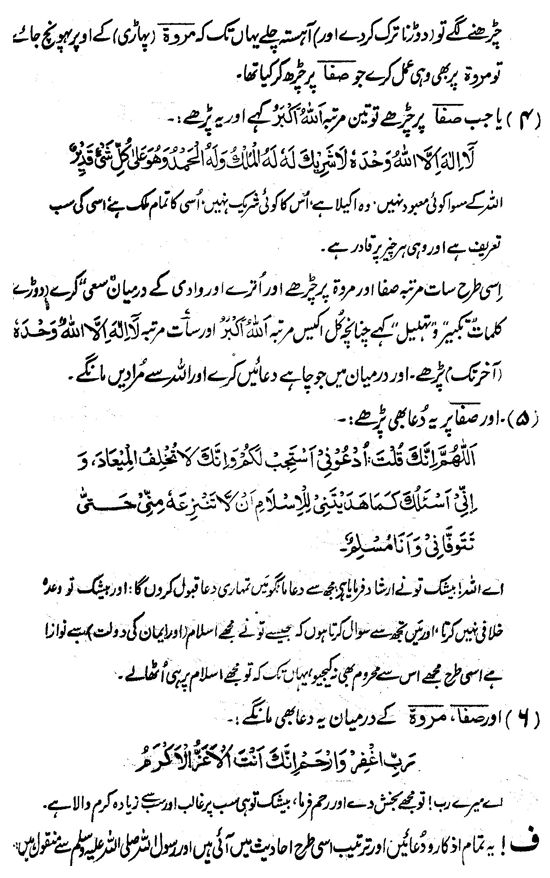 چڑھنے لگے تو (دوڑنا ترک کردے اور) آہستہ چلے یہاں تک کہ مروۃ (پہاڑی) کے اوپر پہونچ جائے
تو مروۃ پر بھی وہی عمل کرے جو صفا پر چڑھ کر کیا تھا۔
(۴) یا جب صفا پر چڑھے تو تین مرتبہ اَللہُ اَکْبَرُ کہے اور یہ پڑھے:۔
لَا اِلٰہَ اِلَّا اللہُ وَحْدَہٗ لَا شَرِیْکَ لَہٗ لَہُ الْمُلْکُ وَلَہُ الْحَمْدُ وَھُوَ عَلٰی کُلِّ شَیْءٍ قَدِیْرٌ
اللہ کے سوا کوئی معبود نہیں، وہ اکیلا ہے، اُس کا کوئی شریک نہیں، اُسی کا تمام ملک ہے، اسی کی سب
تعریف ہے اور وہی ہر چیز پر قادر ہے۔
اِسی طرح سات مرتبہ صفا اور مروۃ پر چڑھے اور اُترے اور وادی کے درمیان "سعی" کرے (دوڑے)
کلمات "تکبیر" و "تہلیل" کہے چنانچہ کُل اکیس مرتبہ اَللہُ اَکْبَرُ اور سات مرتبہ لَا اِلٰہَ اِلَّا اللہُ وَحْدَہٗ
(آخر تک) پڑھے۔ اور درمیان میں جو چاہے دعائیں کرے اور اللہ سے مرادیں مانگے۔
(۵)۔ اور صفا پر یہ دُعا بھی پڑھے:۔
اَللّٰھُمَّ اِنَّکَ قُلْتَ: اُدْعُوْنِیْ اَسْتَجِبْ لَکُمْ وَاِنَّکَ لَا تُخْلِفُ الْمِیْعَادَ، وَ
اِنِّیْ اَسْئَلُکَ کَمَا ھَدَیْتَنِیْ لِلْاِسْلَامِ اَنْ لَّا تَنْزِعَہٗ مِنِّیْ حَتّٰی
تَتَوَفَّانِیْ وَاَنَا مُسْلِمٌ۔
اے اللہ! بیشک تو نے ارشاد فرمایا ہے، مجھ سے دعا مانگو میں تمہاری دعا قبول کروں گا؛ اور بیشک تو وعدہ
خلافی نہیں کرتا، اور میں تجھ سے سوال کرتا ہوں کہ جیسے تو نے مجھے اسلام (اور ایمان کی دولت) سے نوازا
ہے اسی طرح مجھے اس سے محروم بھی نہ کیجیو، یہاں تک کہ تو مجھے اسلام پر ہی اُٹھالے۔
(۶) اور صفا، مروۃ کے درمیان یہ دعا بھی مانگے:۔
رَبِّ اغْفِرْ وَارْحَمْ اِنَّکَ اَنْتَ الْاَعَزُّ الْاَکْرَمُ
اے میرے رب! تو مجھے بخش دے اور رحم فرما، بیشک تو ہی سب پر غالب اور سب سے زیادہ کرم والا ہے۔
ف! یہ تمام اذکار و دُعائیں اور ترتیب اسی طرح احادیث میں آئی ہیں اور رسول اللہ صلی اللہ علیہ وسلم سے منقول ہیں۔